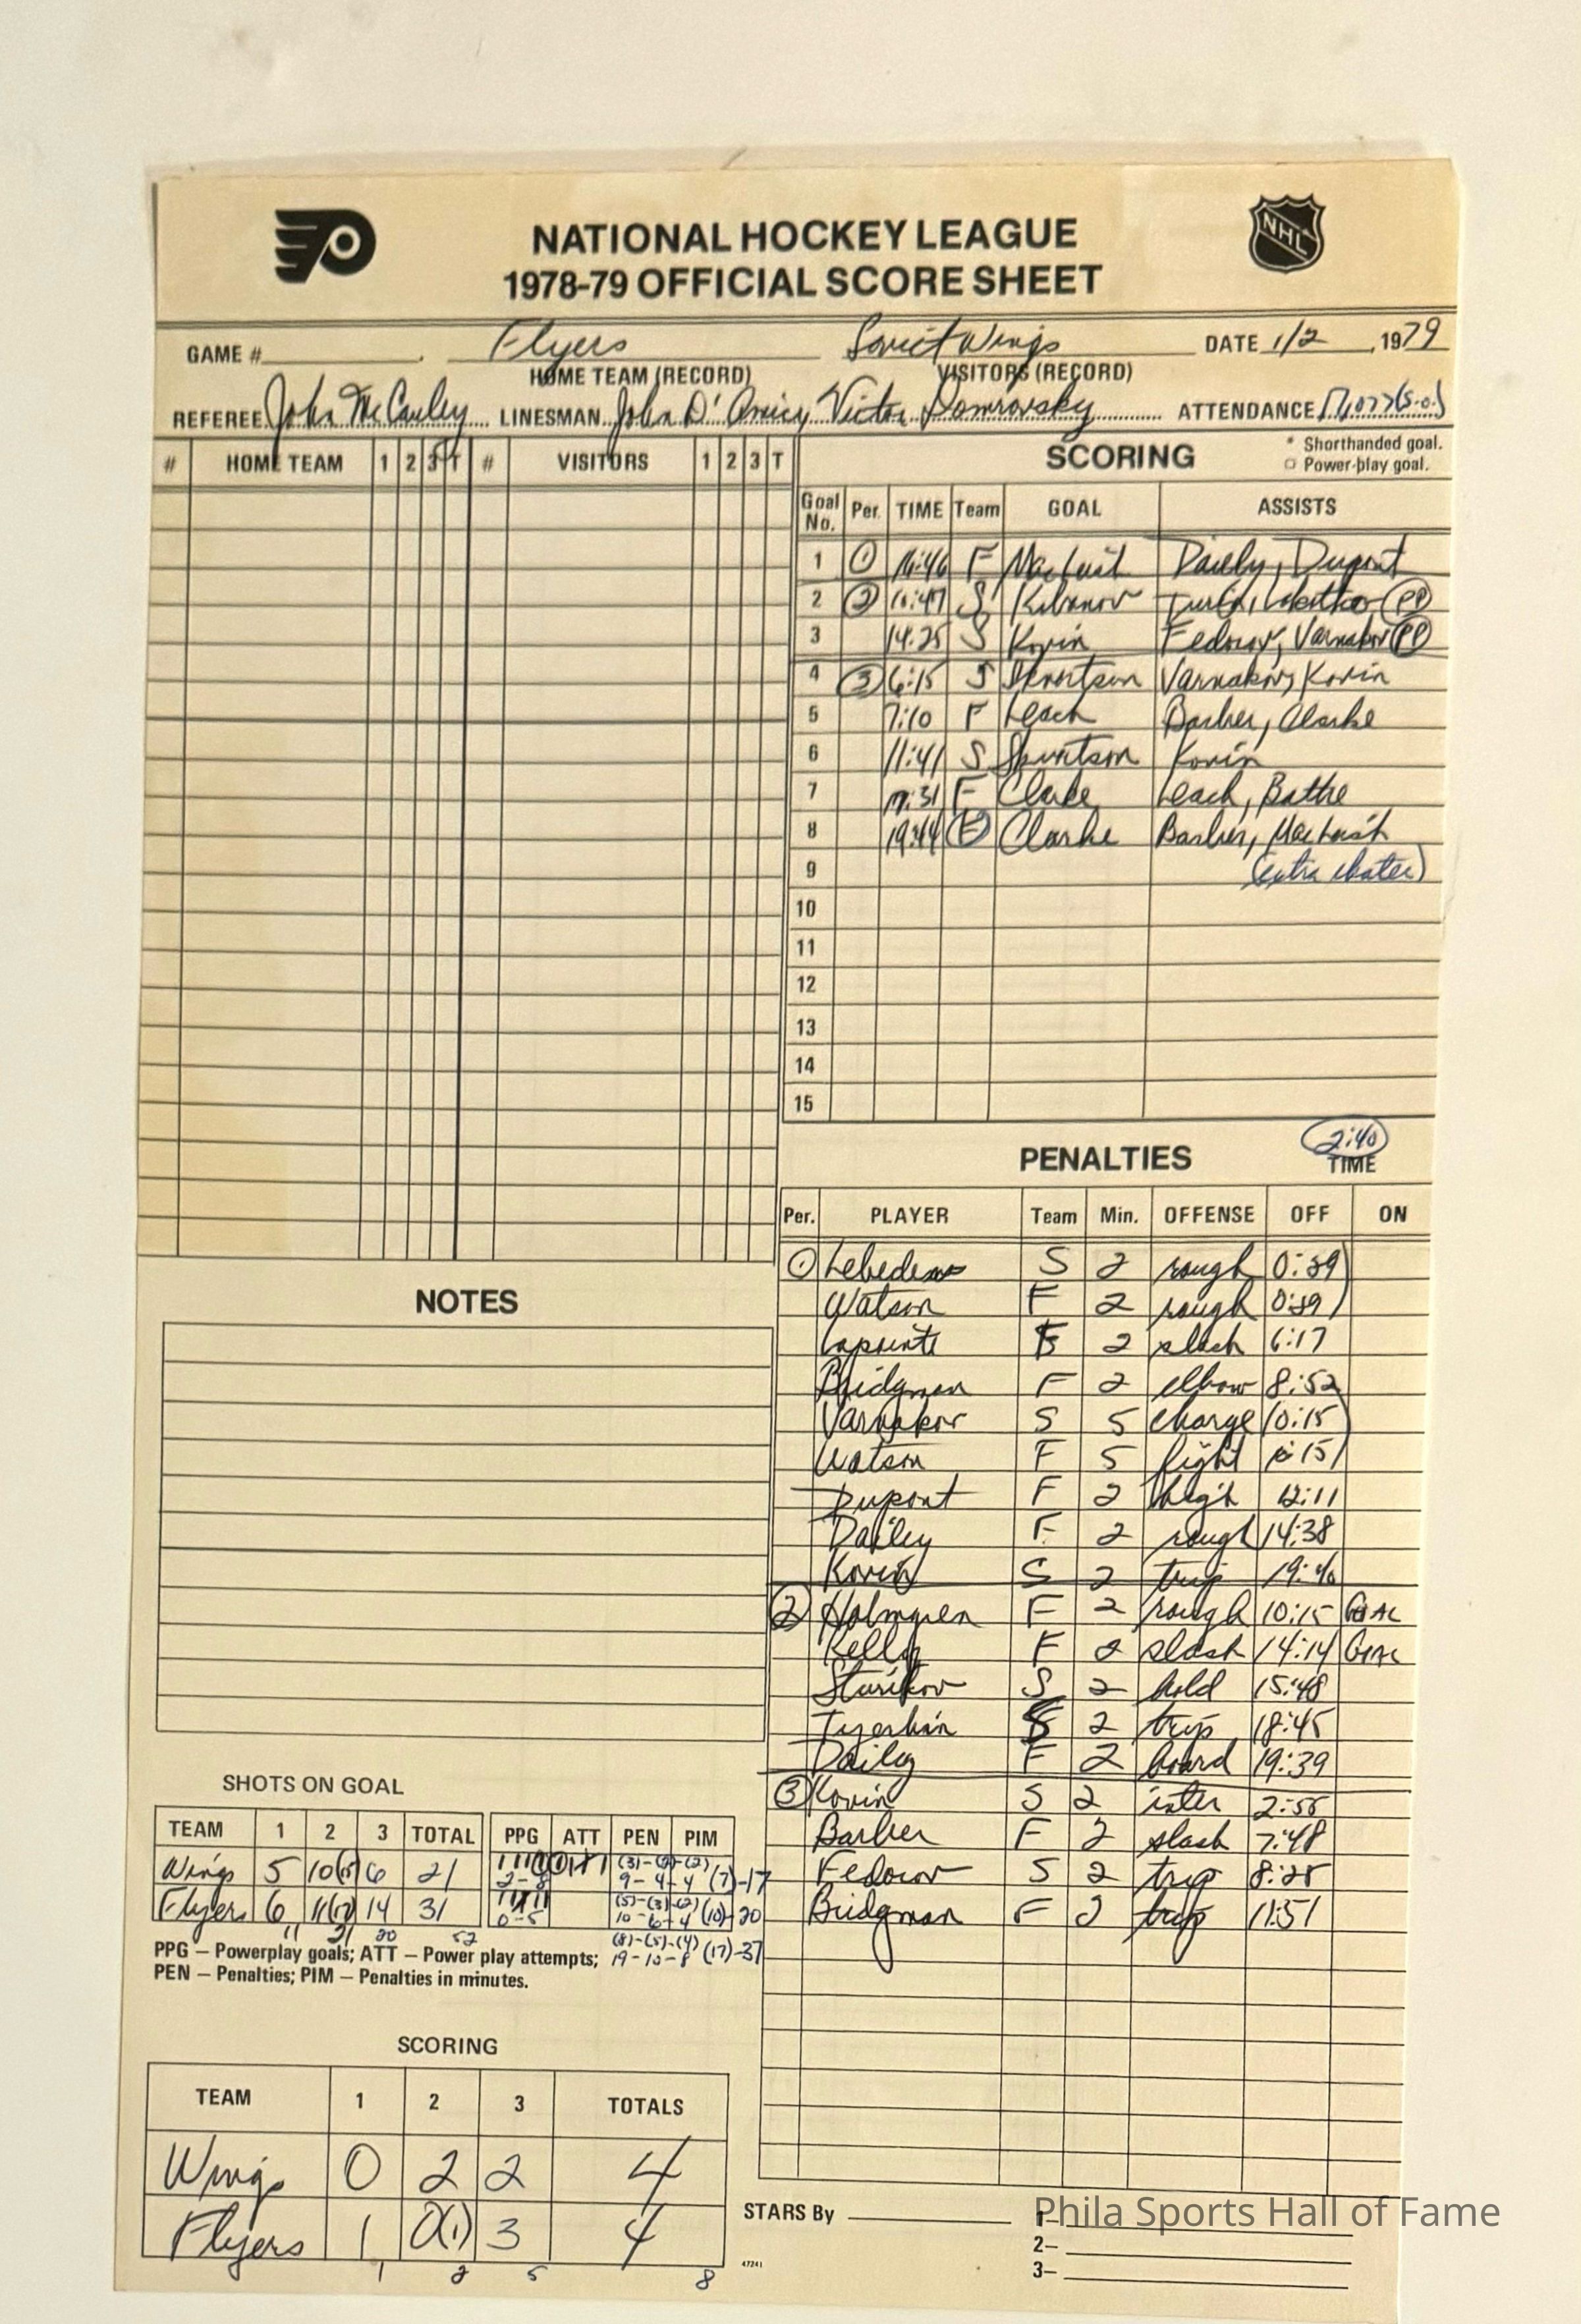 NATIONAL HOCKEY LEAGUE
NHL
1978-79 OFFICIAL SCORE SHEET
GAME # Flyers Soviet Wings DATE 1/2, 1979
HOME TEAM (RECORD) VISITORS (RECORD)
REFEREE John McCauley LINESMAN John D'Amico, Victor ATTENDANCE 17,077 (S.O.)
# HOME TEAM 1 2 3 T # VISITORS 1 2 3 T
SCORING
* Shorthanded goal.
□ Power-play goal.
Goal No. Per. TIME Team GOAL ASSISTS
1 ① 16:46 F MacLeish Dailey, Dupont
2 ② S (PP)
3 14:25 S Kovin Fedorov, Varnakov (PP)
4 ③ 6:15 S Varnakov, Kovin
5 7:10 F Leach Barber, Clarke
6 11:41 S Kovin
7 F Clarke Leach, Bathe
8 19:44 F Clarke Barber, MacLeish
9 (extra skater)
10
11
12
13
14
15
PENALTIES
2:40
TIME
Per. PLAYER Team Min. OFFENSE OFF ON
① Lebedev S 2 rough 0:39
Watson F 2 rough 0:39
Lapointe F 2 slash 6:17
Bridgman F 2 elbow 8:52
Varnakov S 5 charge 10:15
Watson F 5 fight 10:15
Dupont F 2 high 12:11
Dailey F 2 rough 14:38
Kovin S 2 trip
② Holmgren F 2 rough 10:15 GOAL
Kelly F 2 slash 14:14 GOAL
S 2 hold 15:48
S 2 trip 18:45
Dailey F 2 board 19:39
③ Kovin S 2 inter
Barber F 2 slash 7:48
Fedorov S 2 trip 8:28
Bridgman F 2 trip 11:51
NOTES
SHOTS ON GOAL
TEAM 1 2 3 TOTAL PPG ATT PEN PIM
Wings 5 10(15) 6 21 2-8 (3)-(2)-(2) 9-4-4 (7)-17
Flyers 6 11(17) 14 31 0-5 (5)-(3)-(2) 10-6-4 (10)-20
11 21 20 52 (8)-(5)-(4)
PPG – Powerplay goals; ATT – Power play attempts; 19-10-8 (17)-37
PEN – Penalties; PIM – Penalties in minutes.
SCORING
TEAM 1 2 3 TOTALS
Wings 0 2 2 4
Flyers 1 0(1) 3 4
1 2 5 8
STARS By
1–
2–
3–
47241
Phila Sports Hall of Fame